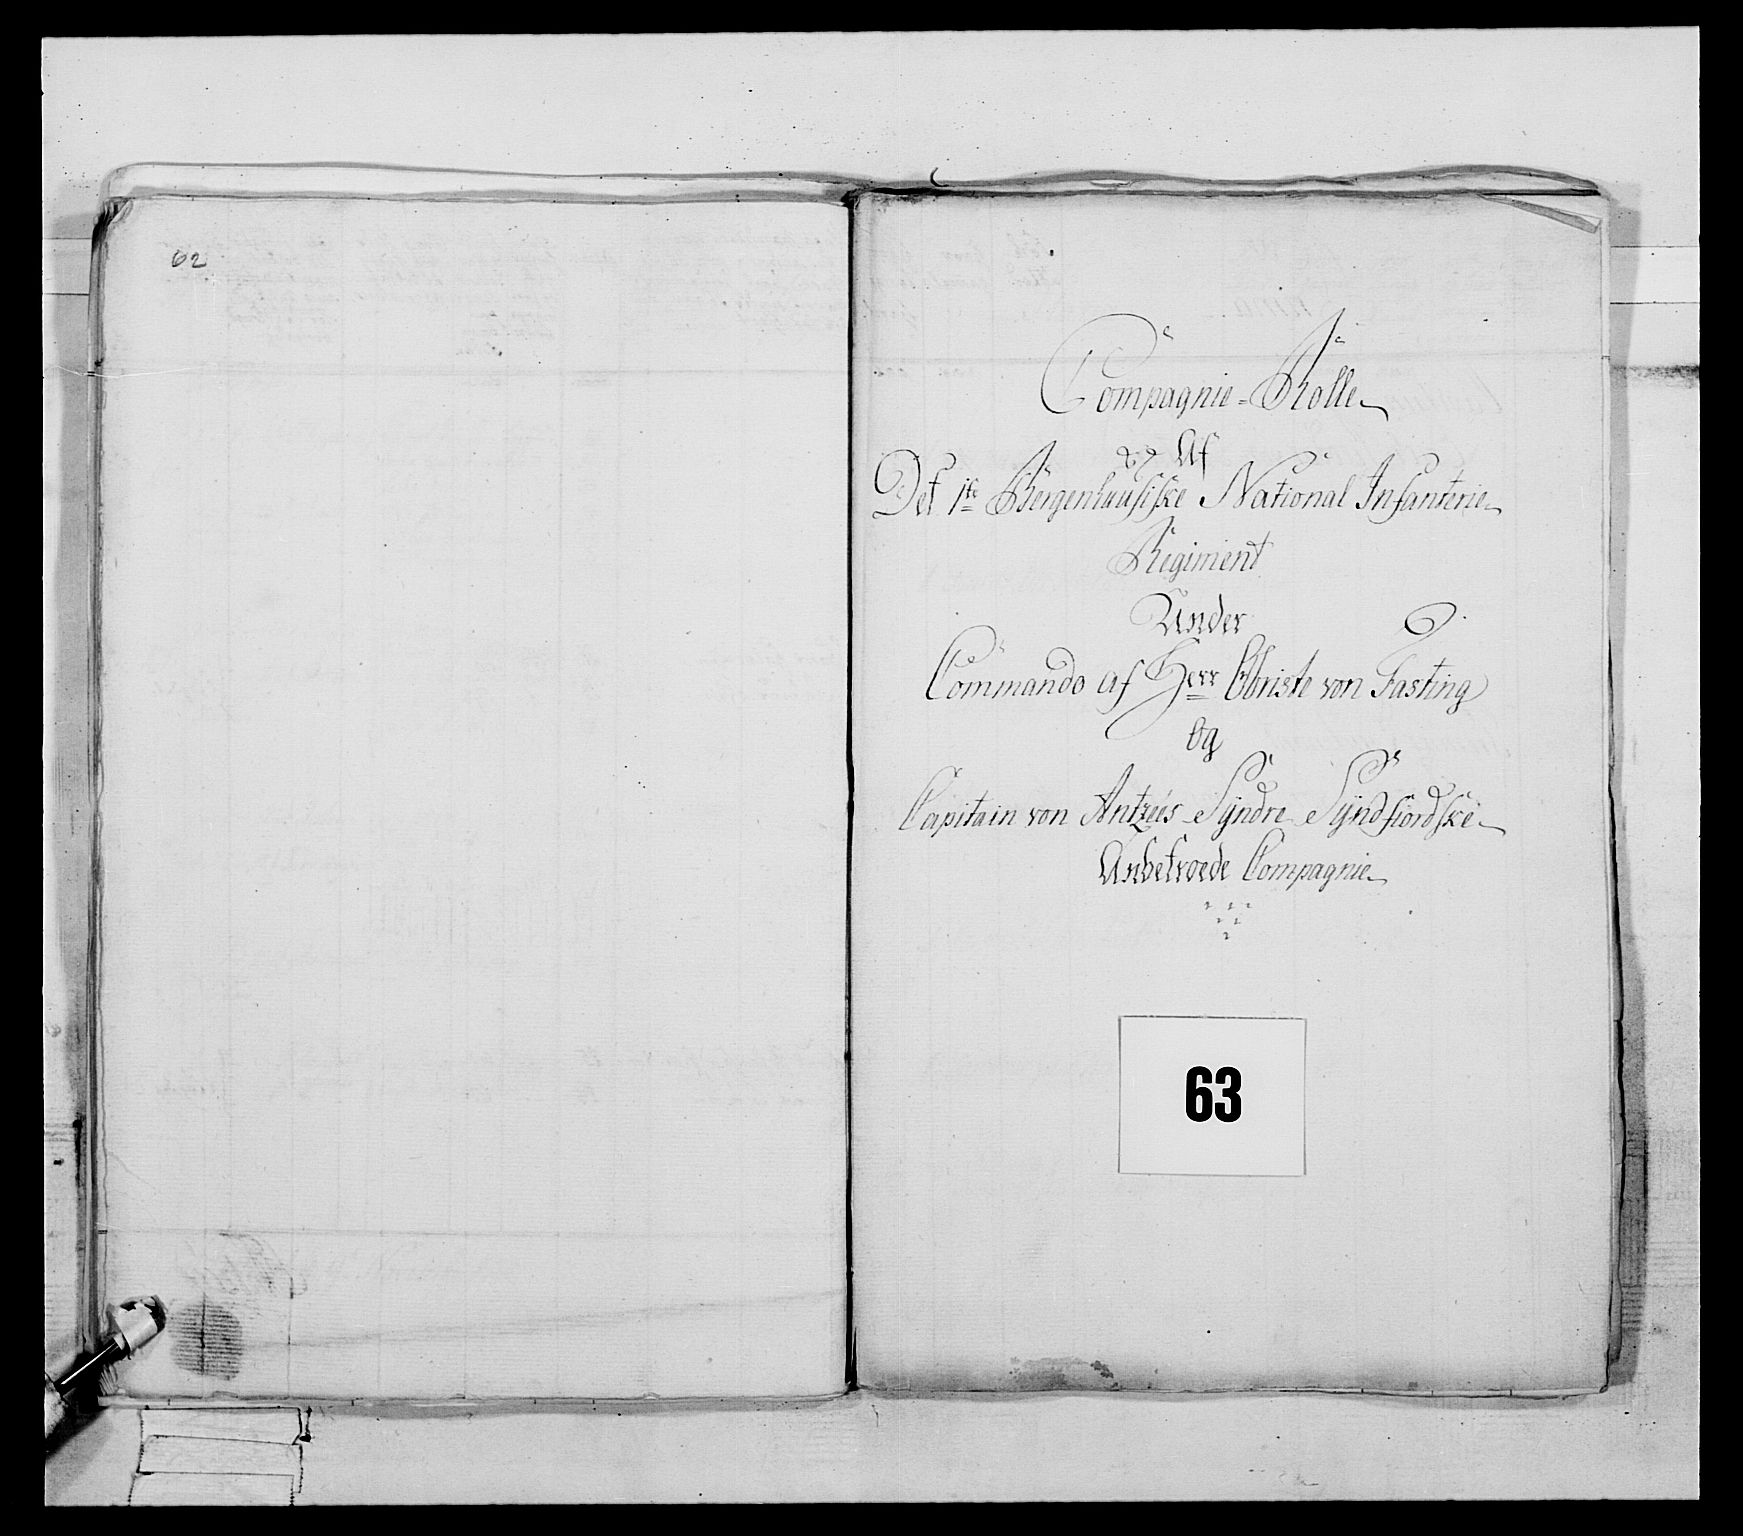 62
Compagnie=Rolle
Af
Det 1ste Bergenhusiske National Infanterie
Regiment
Under
Commando af Herr Obriste von Fasting
Og
Capitain von Antzées Syndre Syndfiordske
Anbetroede Compagnie
63